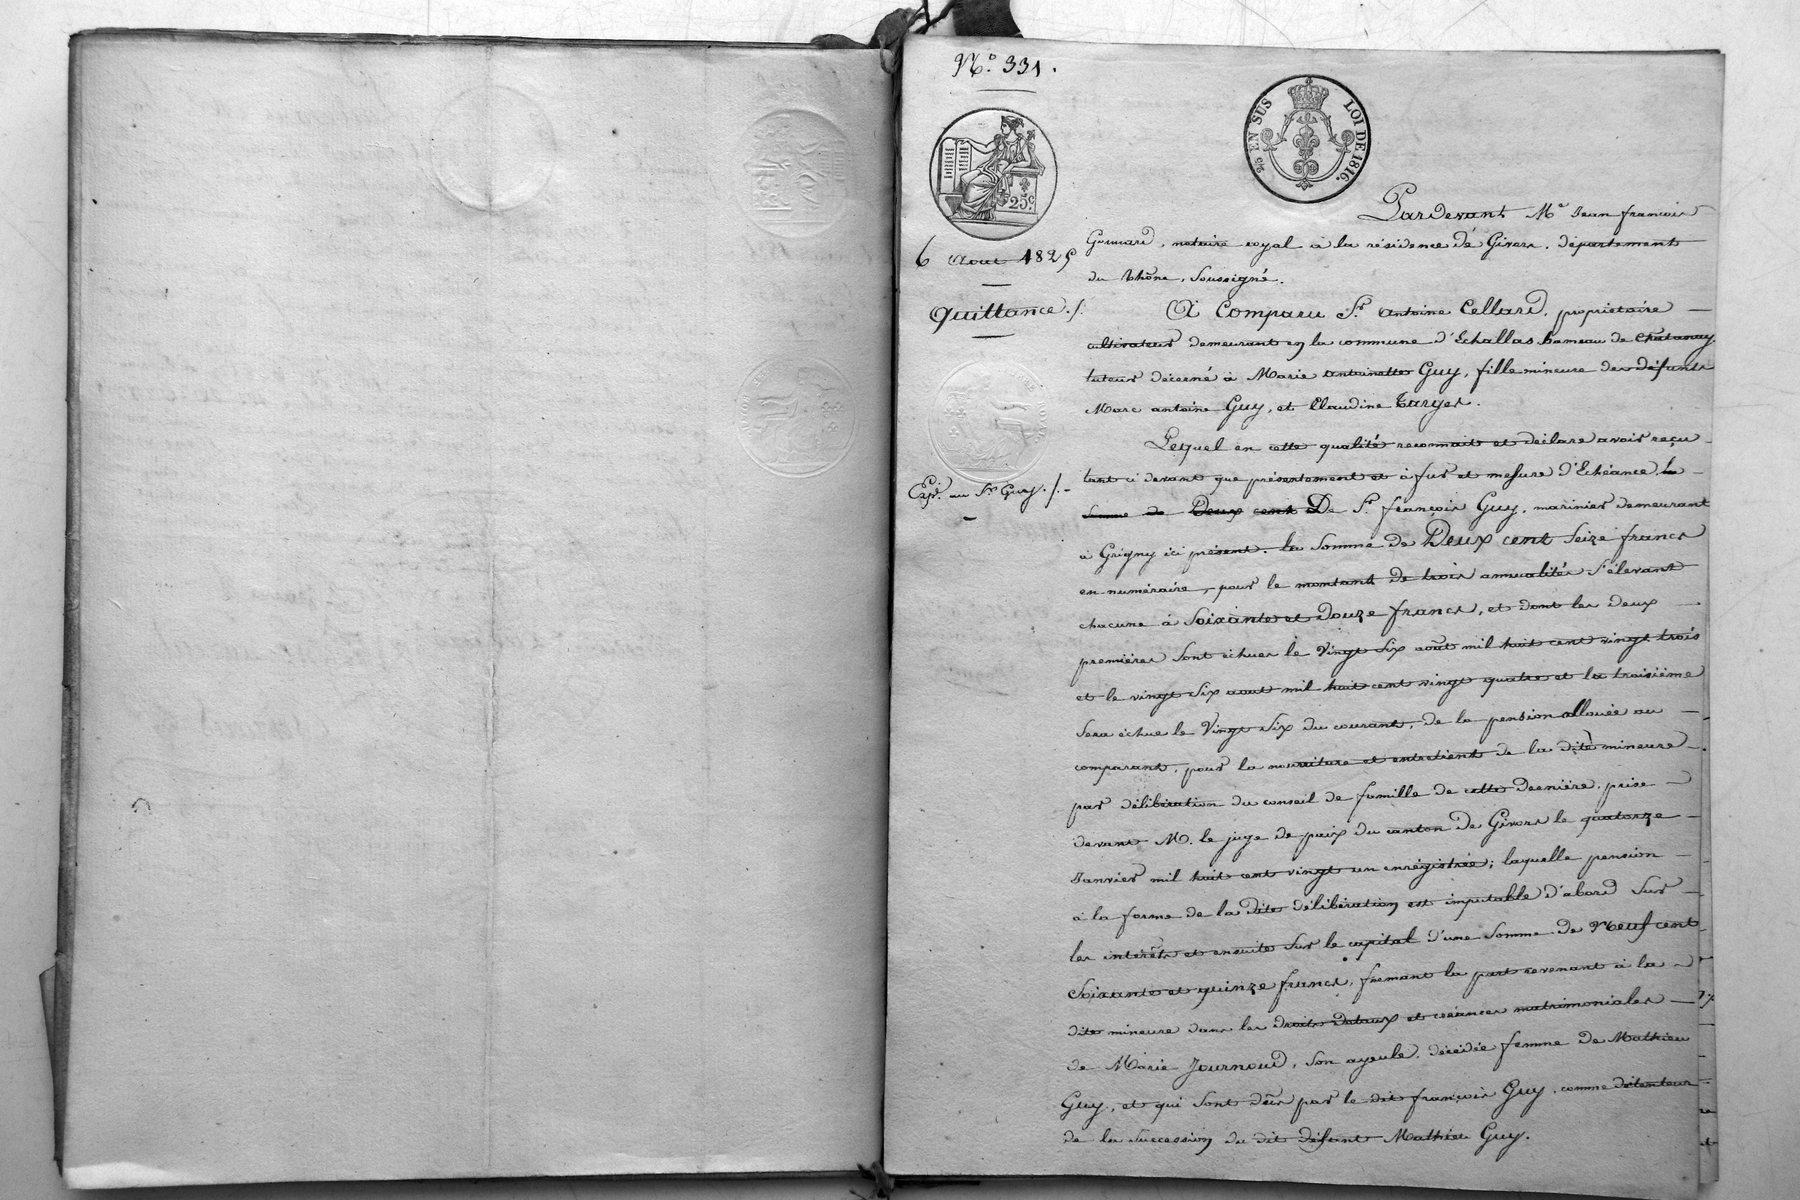 N.o 331.
EN SUS
LOI DE 1816.
25c.
Pardevant Me Jean françois
notaire royal à la résidence de Givors, département
6 Aout 1825
du Rhône, Soussigné.
Quittance ./.
A Comparu Sr. Antoine Cellard, propriétaire
cultivateur demeurant en la commune d'Echallas hameau de Chatanay,
tuteur décerné à Marie Antoinette Guy, fille mineure des défunts
Marc antoine Guy, et Claudine Targes.
Lequel en cette qualité reconnait et déclare avoir reçu
tant ci devant que présentement et à fur et mesure d'Echéance, la
Exp. au Sr Guy ./.
Somme de Deux cent De Sr. françois Guy, marinier demeurant
à Grigny ici présent, la Somme de Deux cent Seize francs
en numéraire, pour le montant de trois annualités S'élevant
chacune à Soixante et Douze francs, et dont les deux
premières Sont échues le Vingt Six août mil huit cent vingt trois
et le vingt Six aout mil huit cent vingt quatre et la troisième
Sera échue le Vingt Six du courant, de la pension allouée au
comparant, pour la nourriture et entretient de la dite mineure
par délibération du conseil de famille de cette dernière, prise
devant M. le juge de paix du canton de Givors le quatorze
Janvier mil huit cent vingt un enrégistrée; laquelle pension
à la forme de la dite délibération est imputable d'abord Sur
les intérêts et ensuite Sur le capital d'une Somme de Neuf cent
Soixante et quinze francs, formant la part revenant à la
dite mineure dans les droits dotaux et créances matrimoniales
de Marie Journoud, Son ayeule, décédée femme de Mathieu
Guy, et qui Sont dûs par le dit françois Guy, comme détenteur
de la Succession du dit défunt Mathieu Guy.